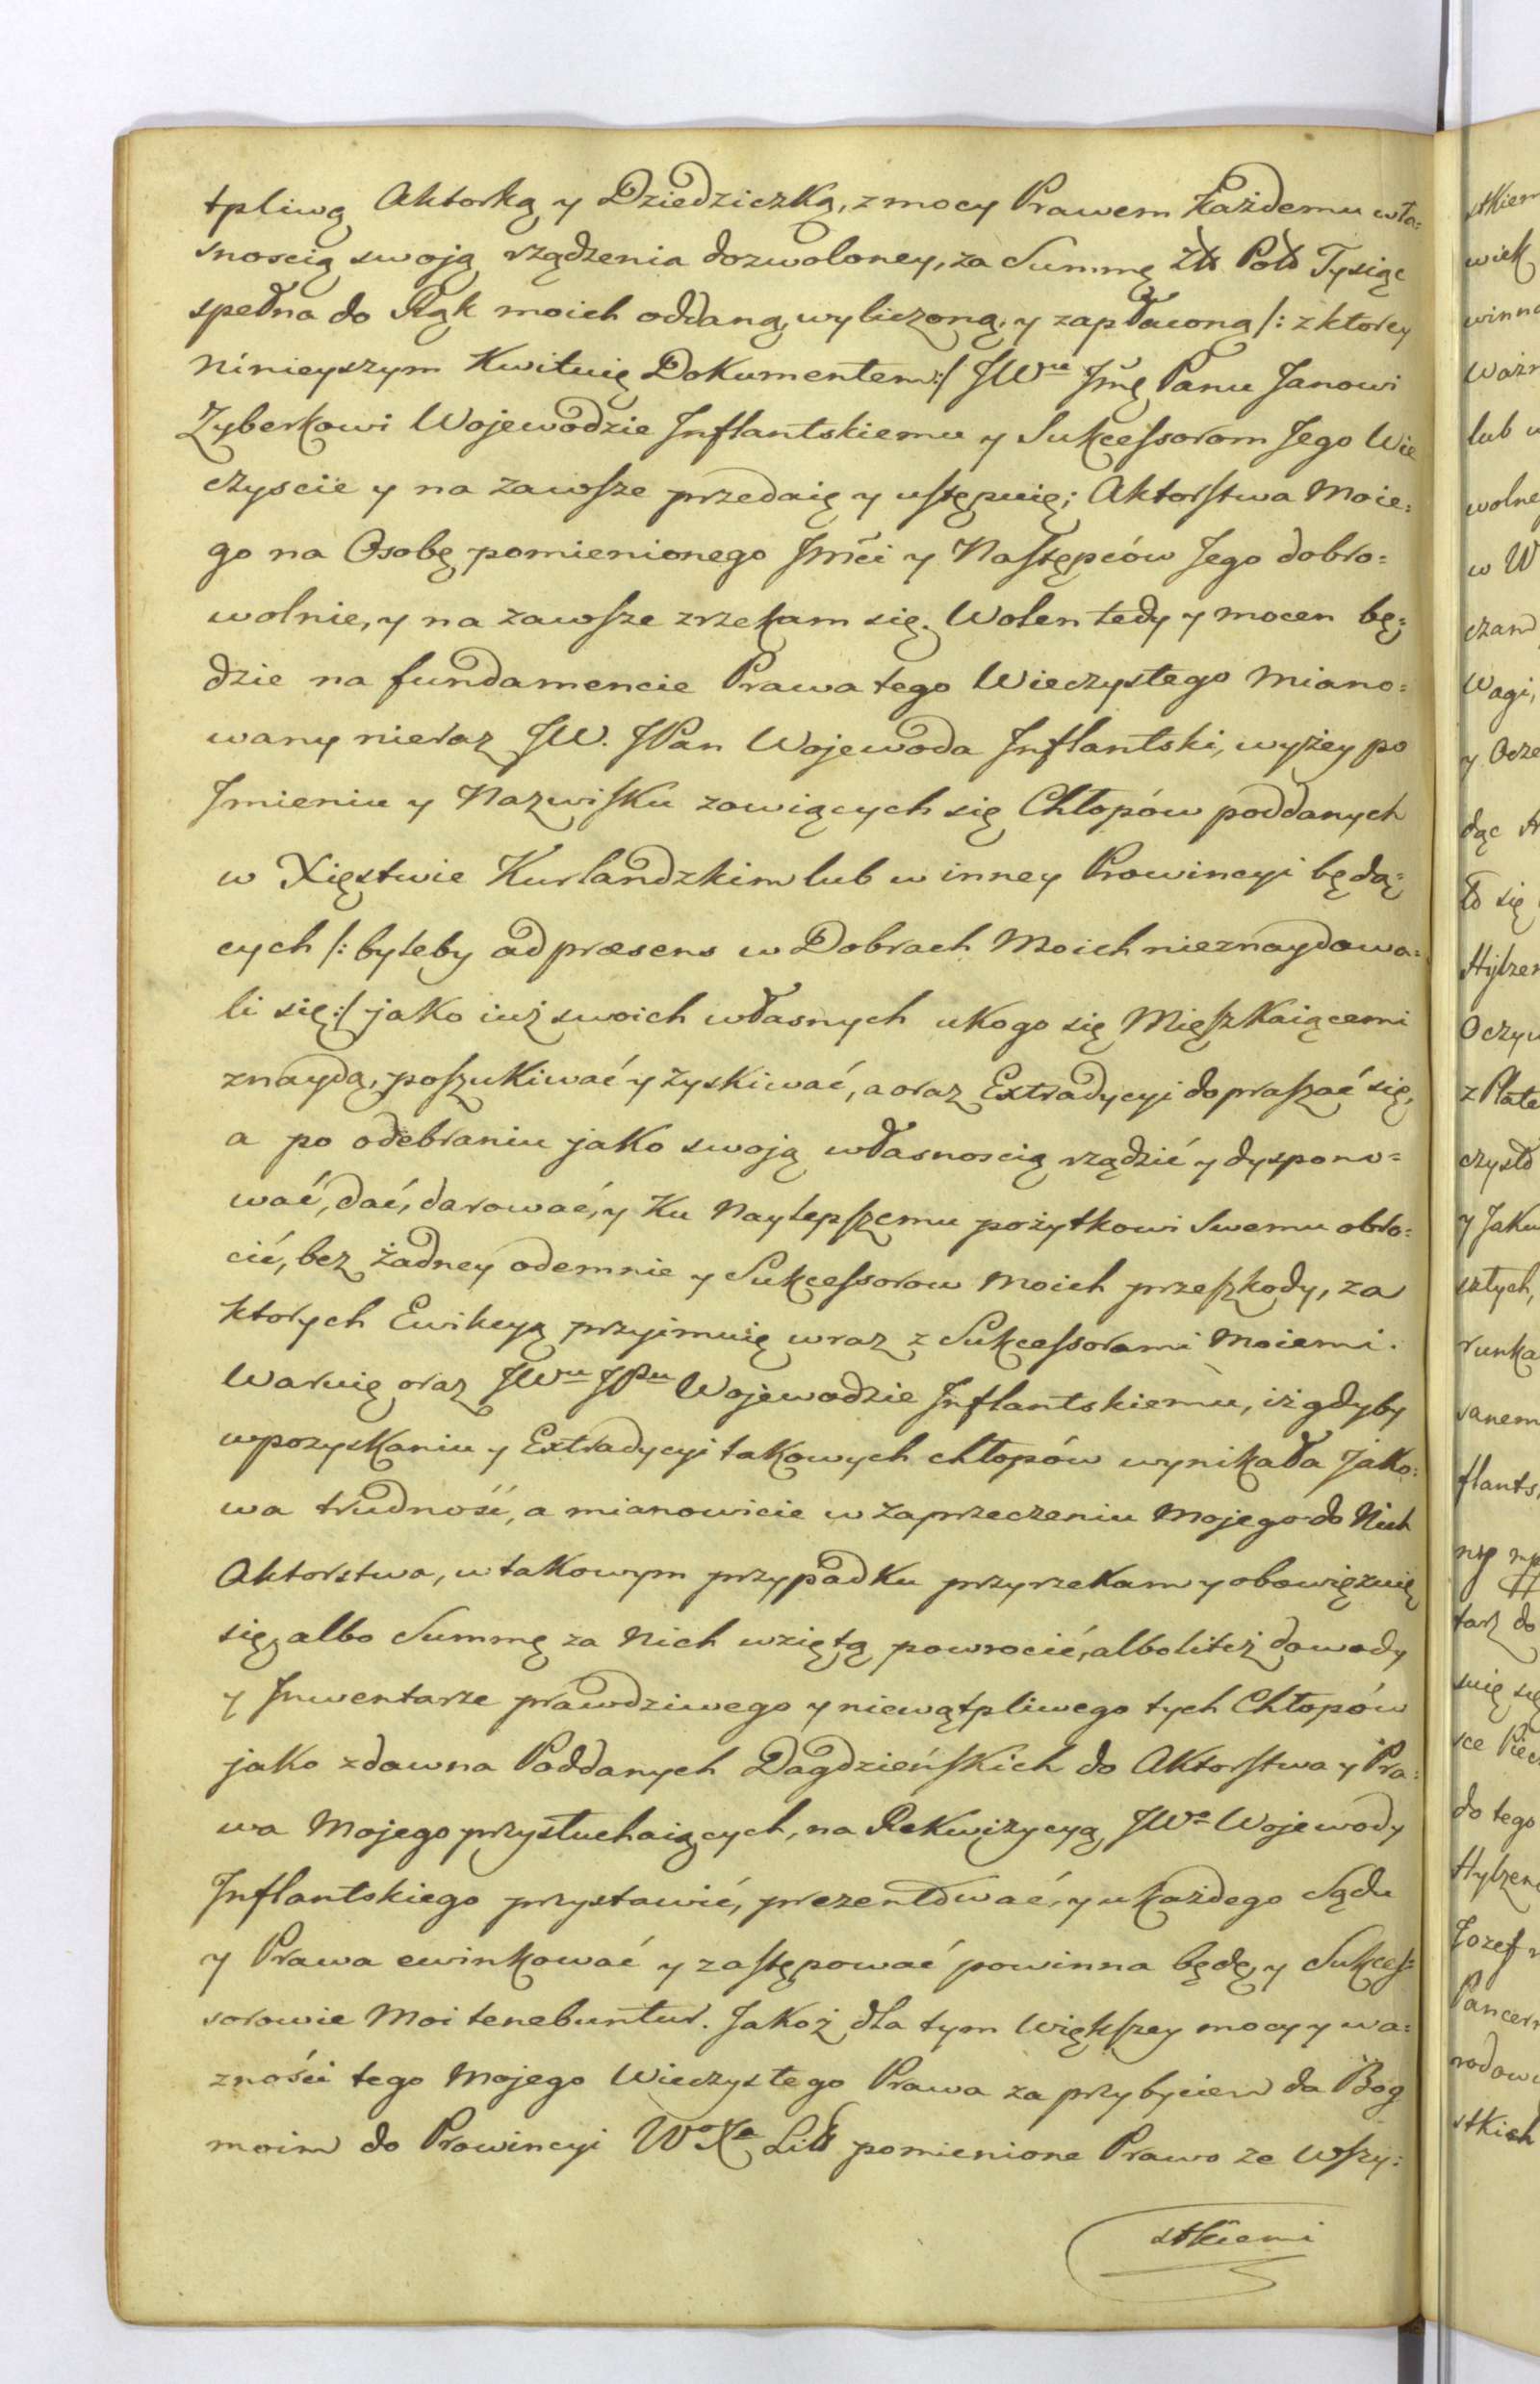 tpliwą Aktorką y Dziedziczką, z mocy Prawem każdemu wła=
snoscią swoją rządzenia dozwoloney, za Summę Złł Poł Tysiąc
spełna do Rąk moich oddaną, wyliczoną, y zapłaconą /: z ktorey
Ninieyszym Kwituię Dokumentem :/ JWu Jmć Panu Janowi
Zyberkowi Wojewodzie Inflantskiemu y Sukcessorom Jego Wie
czyscie y na zawsze przedaię y ustępuię; Aktorstwa Moie=
go na Osobę pomienionego Jmći y Następców Jego dobro=
wolnie, y na zawsze zrzekam się. Wolen tedy y mocen bę=
dzie na fundamencie Prawa tego Wieczystego Miano=
wany nieraz JW. JPan Wojewoda Inflantski, wyżey po
Jmieniu y Nazwisku zowiących się Chłopów poddanych
w Xięstwie Kurlandzkim lub w inney Prowincyi będą=
cych /: byleby ad præsens w Dobrach Moich nieznaydowa=
li się :/ jako iuż swoich własnych ukogo się Mięszkaiącemi
znaydą, poszukiwać y zyskiwać, a oraz Extradycyi dopraszać się,
a po odebraniu jako swoją własnoscią rządzić y dyspono=
wać, dać, darować, y Ku Naylepszemu pożytkowi Swemu obro=
cić, bez żadney odemnie y Sukcessorow Moich przeszkody, za
ktorych Ewikcyą przyimuię wraz z Sukcessorami Moiemi.
Waruię oraz JWu JPu Wojewodzie Inflantskiemu, iż gdyby
wpozyskaniu y Extradycyi takowych chłopów wynikała Jako=
wa trudność, a mianowicie w zaprzeczeniu Mojego do Nich
Aktorstwa, w takowym przypadku przyrzekam y obowięzuię
się, albo Summę za Nich wziętą powrocić, albolitéż dowody
y Inwentarze prawdziwego y niewątpliwego tych Chłopów
jako zdawna Poddanych Dagdzieńskich do Aktorstwa y Pra=
wa Mojego przysłuchaiących, na Rekwizycyą JWo Wojewody
Inflantskiego przystawić, prezentować, y ukażdego Sądu
y Prawa ewinkować y zastępować powinna będę, y Sukces=
sorowie Moi tenebuntur. Jakoż dla tym większey mocy y wa=
zności tego Mojego Wieczystego Prawa za przybyciem da Bog
moim do Prowincyi Wo Xa Litt pomienione Prawo ze Wszy=
stkiemi